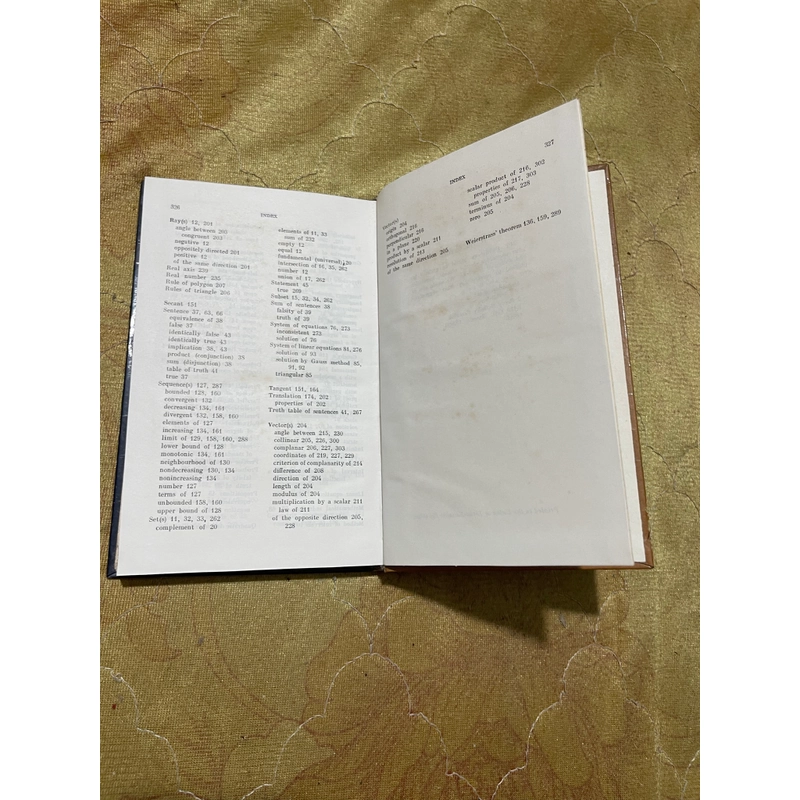 326
INDEX
Ray(s) 12, 201
angle between 205
congruent 201
negative 12
oppositely directed 201
positive 12
of the same direction 201
Real axis 239
Real number 235
Rule of polygon 207
Rules of triangle 206
Secant 151
Sentence 37, 63, 66
equivalence of 38
false 37
identically false 43
identically true 43
implication 38, 43
product (conjunction) 38
sum (disjunction) 38
table of truth 41
true 37
Sequence(s) 127, 287
bounded 128, 160
convergent 132
decreasing 134, 161
divergent 132, 158, 160
elements of 127
increasing 134, 161
limit of 129, 158, 160, 288
lower bound of 128
monotonic 134, 161
neighbourhood of 130
nondecreasing 130, 134
nonincreasing 134
number 127
terms of 127
unbounded 158, 160
upper bound of 128
Set(s) 11, 32, 33, 262
complement of 20
elements of 11, 33
sum of 232
empty 12
equal 12
fundamental (universal) 20
intersection of 16, 33, 262
number 12
union of 17, 262
Statement 45
true 269
Subset 15, 32, 34, 262
Sum of sentences 38
falsity of 39
truth of 39
System of equations 76, 273
inconsistent 273
solution of 76
System of linear equations 84, 276
solution of 93
solution by Gauss method 85,
91, 92
triangular 85
Tangent 151, 164
Translation 174, 202
properties of 202
Truth table of sentences 41, 267
Vector(s) 204
angle between 215, 230
collinear 205, 226, 300
complanar 206, 227, 303
coordinates of 219, 227, 229
criterion of complanarity of 214
difference of 208
direction of 204
length of 204
modulus of 204
multiplication by a scalar 211
law of 211
of the opposite direction 205,
228
INDEX
327
origin 204
orthogonal 216
perpendicular 216
in a plane 220
product by a scalar 211
resolution of 211
of the same direction 205
scalar product of 216, 302
properties of 217, 303
sum of 205, 206, 228
terminus of 204
zero 205
Weierstrass' theorem 136, 159, 289